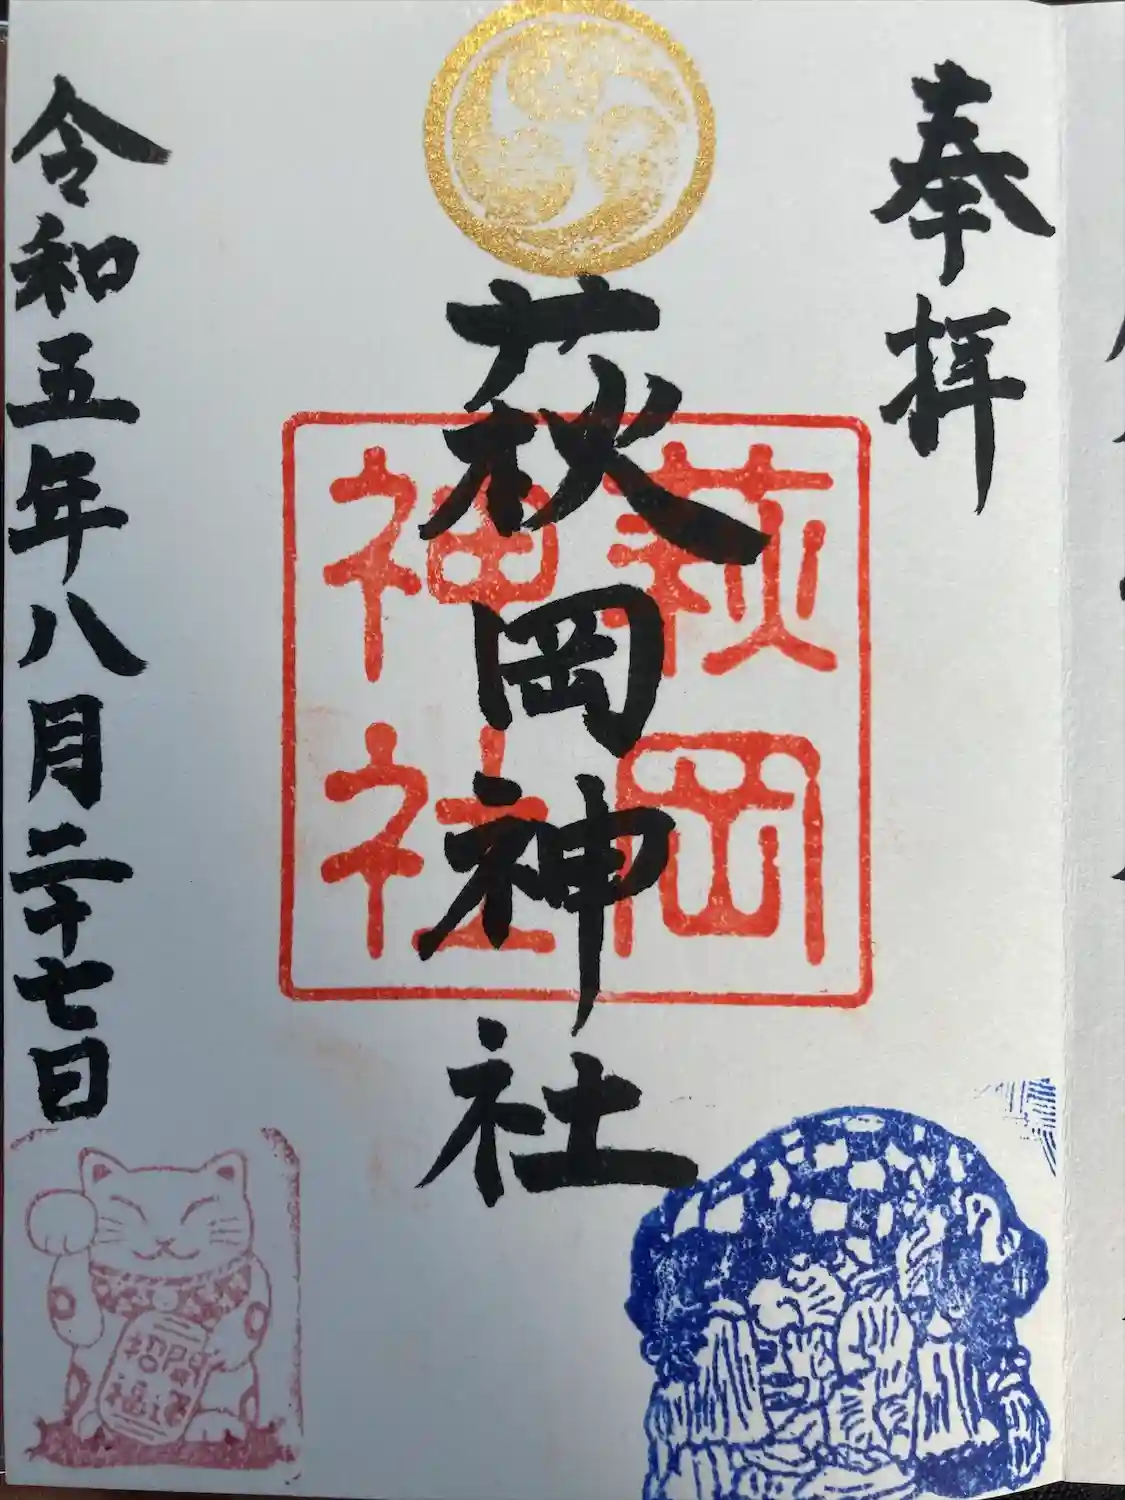 奉拝
萩岡神社
萩岡
神社
令和五年八月二十七日
招福